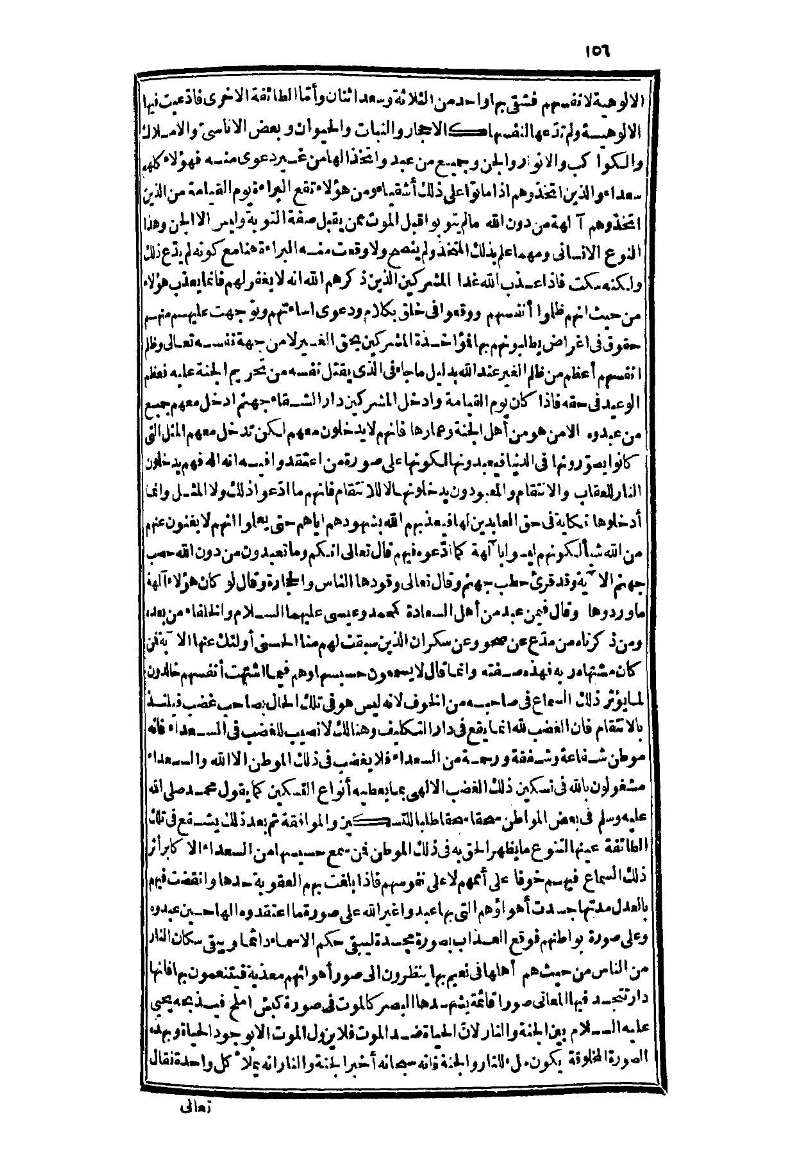 ١٥٦
الالوهية لانفسهم فشقي بها واحد من الثلاثة وسعد اثنان وأما الطائفة الاخرى فادعيت فيها
الالوهية ولم تدّعها لنفسها كالاحجار والنبات والحيوان وبعض الاناسى والاملاك
والكواكب والانوار والجن وجميع من عبد واتخذ الها من غير دعوى منه فهؤلاء كلهم
سعداء والذين اتخذوهم اذا ماتوا على ذلك أشقياء ومن هؤلاء تقع البراءة يوم القيامة من الذين
اتخذوهم آلهة من دون الله مالم يتوبوا قبل الموت ممن يقبل صفة التوبة وليس الا الجن وهذا
النوع الانسانى ومهما علم بذلك المتخذ ولم ينصح ولا وقعت منه البراءة هنا مع كونه لم يدّع ذلك
ولكنه سكت فاذا عذب الله غدا المشركين الذين ذكرهم الله انه لا يغفر لهم فانما يعذب هؤلاء
من حيث انهم ظلموا أنفسهم ووقعوا فى خلق بكلام ودعوى اساءتهم وتوجهت عليهم منهم
حقوق فى اغراض يطلبونهم بها فمؤاخذة المشركين بحق الغير لا من جهة نفسه تعالى وظلم
انفسهم أعظم من ظلم الغير عند الله بدليل ما جاء فى الذى يقتل نفسه من تحريم الجنة عليه فعظم
الوعيد فى حقه فاذا كان يوم القيامة وادخل المشركين دار الشقاء جهنم ادخل معهم جميع
من عبدوه الا من هو من أهل الجنة وعمارها فانهم لا يدخلون معهم لكن تدخل معهم المثل التى
كانوا يصوّرونها فى الدنيا فيعبدونها لكونها على صورة من اعتقدوا فيه انه اله فهم يدخلون
النار للعقاب والانتقام والمعبودون يدخلونها لا للانتقام فانهم ما ادعوا ذلك ولا المثل وانما
أدخلوها نكاية فى حق العابدين لها فيعذبهم الله بشهودهم اياهم حتى يعلموا انهم لا يغنون عنهم
من الله شيأ لكونهم ليسوا باآلهة كما ادّعوه فيهم قال تعالى انكم وما تعبدون من دون الله حصب
جهنم الاآية وقد قرئ حطب جهنم وقال تعالى وقودها الناس والحجارة وقال لو كان هؤلاء آلهة
ما وردوها وقال فيمن عبد من أهل السعادة كمحمد وعيسى عليهما السلام والخلفاء من بعده
ومن ذكرناه من مدّع عن صحو وعن سكران الذين سبقت لهم منا الحسنى أولئك عنها الاآية فمن
كان مشتهار به فهذه صفته وانما قال لا يسمعون حسيسها وهم فيما اشتهت أنفسهم خالدون
لما يؤثر ذلك السماع فى صاحبه من الخوف لانه ليس هو فى تلك الحال بصاحب غضب فيلتذ
بالانتقام فان الغضب لله انما يقع فى دار التكليف وهنالك لا نصيب للغضب فى السعداء فانه
موطن شفاعة وشفقة ورحمة من السعداء فلا يغضب فى ذلك الموطن الا الله والسعداء
مشغولون بالله فى تسكين ذلك الغضب الالهى بما يعطيه أنواع التسكين كما يقول محمد صلى الله
عليه وسلم فى بعض المواطن سحقا سحقا طلبا للتسكين والموافقة ثم بعد ذلك يشفع فى تلك
الطائفة عينها لتنوع ما يظهر الحق به فى ذلك الموطن فمن سمع حسيسها من السعداء الاكابر أثر
ذلك السماع فيهم خوفا على أممهم لا على نفوسهم فاذا بلغت بهم العقوبة حدها وانقضت فيهم
بالعدل مدتها جسدت أهواؤهم التى بها عبدوا غير الله على صورة ما اعتقدوه الها حين عبدوه
وعلى صورة بواطنهم فوقع العذاب بصورة مجسدة ليبقى حكم الاسماء دائما ويبقى سكان النار
من الناس من حيث هم أهلها فى نعيم بها ينظرون الى صور أهوائهم معذبة فيتنعمون بها فانها
دار تتجسد فيها المعانى صورا قائمة يشهدها البصر كالموت فى صورة كبش املح فيذبحه يحيى
عليه السلام بين الجنة والنار لان الحياة ضد الموت فلا يزول الموت الا بوجود الحياة وبهذه
الصورة المخلوقة يكون ملء للنار والجنة فانه سبحانه أخبر الجنة والنار انه يملأ كل واحدة فقال
تعالى